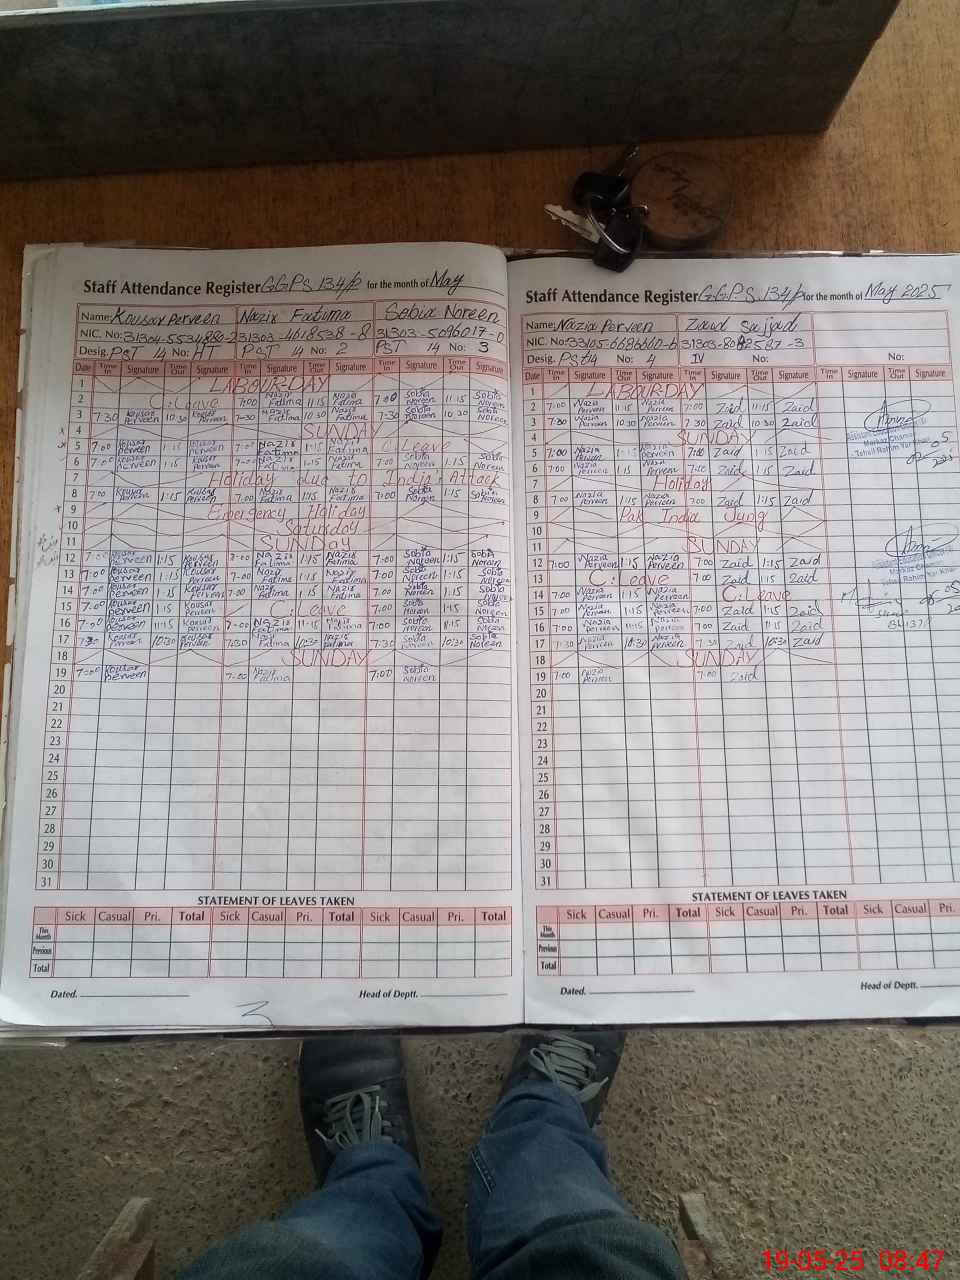 Staff Attendance Register GGPS 134/P for the month of May
Name: Kousar Perveen Nazir Fatima Sobia Noreen
NIC. No: 31303-4618538-8 31303-5096017-0
Desig. PST 14 No: HT PST 14 No: 2 PST 14 No: 3
Date Time In Signature Time Out Signature Time In Signature Time Out Signature Time In Signature Time Out Signature
1 LABOUR DAY
2 C. Leave 7:00 Nazir Fatima 11:15 Nazir Fatima 7:00 Sobia Noreen 11:15 Sobia Noreen
3 7:30 Kousar Perveen 10:30 Kousar Perveen 7:30 Nazir Fatima 10:30 Nazir Fatima 7:30 Sobia Noreen 10:30 Sobia Noreen
4 SUNDAY
5 7:00 Kousar Perveen 1:15 Kousar Perveen 7:00 Nazir Fatima 1:15 Nazir Fatima C. Leave
6 7:00 Kousar Perveen 1:15 Kousar Perveen 7:00 Nazir Fatima 1:15 Nazir Fatima 7:00 Sobia Noreen 1:15 Sobia Noreen
7 Holiday due to India Attack
8 7:00 Kousar Perveen 1:15 Kousar Perveen 7:00 Nazir Fatima 1:15 Nazir Fatima 7:00 Sobia Noreen 1:15 Sobia Noreen
9 Emergency Holiday
10 Saturday
11 SUNDAY
12 7:00 Kousar Perveen 1:15 Kousar Perveen 7:00 Nazir Fatima 1:15 Nazir Fatima 7:00 Sobia Noreen 1:15 Sobia Noreen
13 7:00 Kousar Perveen 1:15 Kousar Perveen 7:00 Nazir Fatima 1:15 Nazir Fatima 7:00 Sobia Noreen 1:15 Sobia Noreen
14 7:00 Kousar Perveen 1:15 Kousar Perveen 7:00 Nazir Fatima 1:15 Nazir Fatima 7:00 Sobia Noreen 1:15 Sobia Noreen
15 7:00 Kousar Perveen 1:15 Kousar Perveen C. Leave 7:00 Sobia Noreen 1:15 Sobia Noreen
16 7:00 Kousar Perveen 11:15 Kousar Perveen 7:00 Nazir Fatima 11:15 Nazir Fatima 7:00 Sobia Noreen 11:15 Sobia Noreen
17 7:30 Kousar Perveen 10:30 Kousar Perveen 7:30 Nazir Fatima 10:30 Nazir Fatima 7:30 Sobia Noreen 10:30 Sobia Noreen
18 SUNDAY
19 7:00 Kousar Perveen 7:00 Nazir Fatima 7:00 Sobia Noreen
20
21
22
23
24
25
26
27
28
29
30
31
STATEMENT OF LEAVES TAKEN
Sick Casual Pri. Total Sick Casual Pri. Total Sick Casual Pri. Total
This Month
Previous
Total
Dated. Head of Deptt.
3
Staff Attendance Register GGPS 134/P for the month of May 2025
Name: Nazia Perveen Zaid Sajjad
NIC. No: 33105-6696660-6
Desig. PST 14 No: 4 IV No: No:
Date Time In Signature Time Out Signature Time In Signature Time Out Signature Time In Signature Time Out Signature
1 LABOUR DAY
2 7:00 Nazia Perveen 11:15 Nazia Perveen 7:00 Zaid 11:15 Zaid
3 7:30 Nazia Perveen 10:30 Nazia Perveen 7:30 Zaid 10:30 Zaid
4 SUNDAY
5 7:00 Nazia Perveen 1:15 Nazia Perveen 7:00 Zaid 1:15 Zaid
6 7:00 Nazia Perveen 1:15 Nazia Perveen 7:00 Zaid 1:15 Zaid
7 Holiday
8 7:00 Nazia Perveen 1:15 Nazia Perveen 7:00 Zaid 1:15 Zaid
9 Pak India Jung
10
11 SUNDAY
12 7:00 Nazia Perveen 1:15 Nazia Perveen 7:00 Zaid 1:15 Zaid
13 C. Leave 7:00 Zaid 1:15 Zaid
14 7:00 Nazia Perveen 1:15 Nazia Perveen C. Leave
15 7:00 Nazia Perveen 1:15 Nazia Perveen 7:00 Zaid 1:15 Zaid
16 7:00 Nazia Perveen 11:15 Nazia Perveen 7:00 Zaid 11:15 Zaid
17 7:30 Nazia Perveen 10:30 Nazia Perveen 7:30 Zaid 10:30 Zaid
18 SUNDAY
19 7:00 Nazia Perveen 7:00 Zaid
20
21
22
23
24
25
26
27
28
29
30
31
STATEMENT OF LEAVES TAKEN
Sick Casual Pri. Total Sick Casual Pri. Total Sick Casual Pri.
This Month
Previous
Total
Dated. Head of Deptt.
19-05-25 08:47